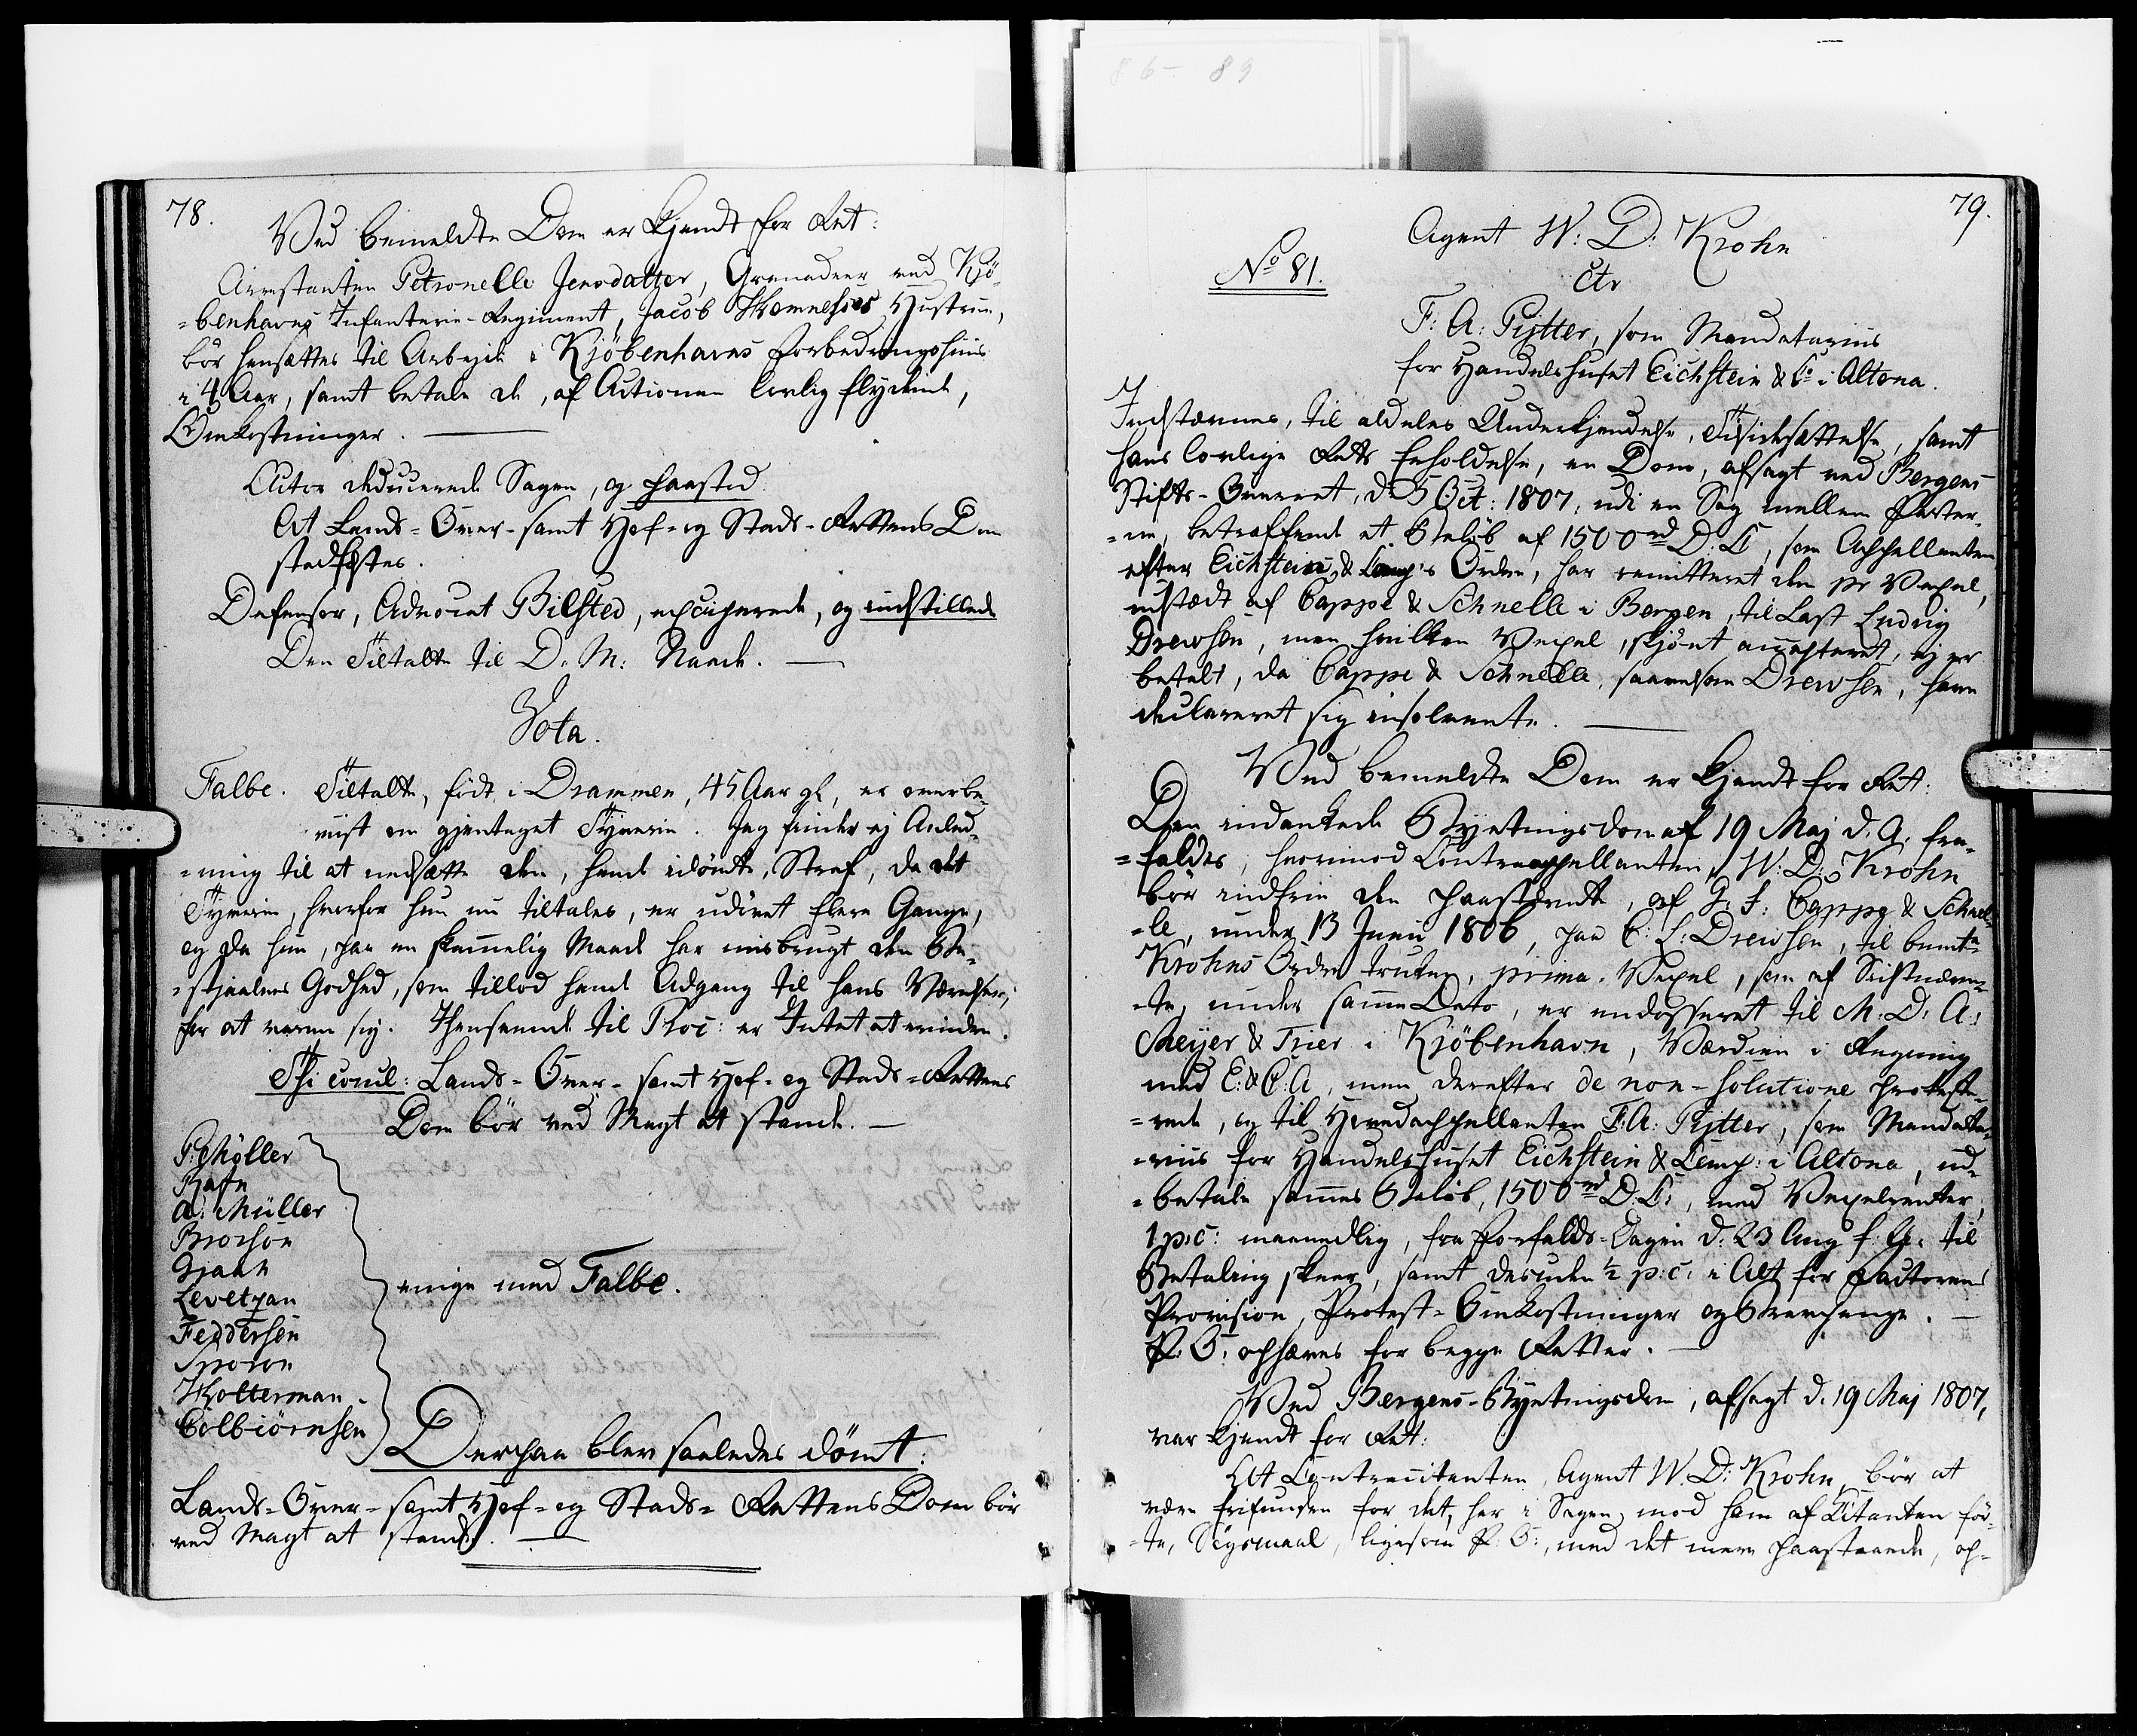 86- 89
78.
Ved bemeldte Dom er kjendt for Ret:
Arrestanten Petronelle Jensdatter, Grenadeer ved Kjö-
=benhavns Infanterie-Regiment, Jacob Hustrue,
bör hensættes til Arbejde i Kjöbenhavns Forbedringshuus
i 4 Aar, samt betale de, af Actionen lovlig flydende,
Omkostninger.
Actor deducerede Sagen, og paastod
At Lands-Over-samt Hof-og Stads-Rettens Dom
stadfæstes.
Defensor, Advocat Bilsted, exciperede, og indstillede
Den Tiltalte til D. M: Naade.
Vota.
Falbe. Tiltalte, födt i Drammen, 45 Aar gl, er overbe-
viist om gjentaget Tyverie. Jeg finder ej Anled-
=ning til at nedsætte den, hende idömte, Straf, da det
Tyverie, hvorfor hun nu tiltales, er udövet flere Gange,
og da hun, paa en skammelig Maade har misbrugt den Be-
=stjaalnes Godhed, som tillod hende Adgang til hans Værelser,
for at varme sig. Henseende til Proc: er Intet at erindre.
Thi concl: Lands-Over-samt Hof-og Stads-Rettens
Dom bör ved Magt at stande.
P: Möller
Rafn
A: Müller
Brorson
Bjaak
Levetzau
Feddersen
Sporon
Kolterman
Colbiörnsen
enige med Falbe.
Derpaa blev saaledes dömt:
Lands-Over-samt Hof-og Stads-Rettens Dom bör
ved Magt at stande.
79.
Agent W: D: Krohn
No 81.
Ctr
F: A: Pijtter, som Mandatarius
for Handelshuset Eichstein & Co i Altona.
Indstævnes, til aldeles Underkjendelse, Tilsidesættelse, samt
hans lovlige Rets Erholdelse, en Dom, afsagt ved Bergens
Stifts-Overret, d. 5 Oct: 1807, udi en Sag mellem Parter-
=ne, betræffende et Belöb af 1500 rd D: C, som Appellanten
efter Eichstein & Comp's Ordre, har remitteret dem pr Vexel,
udstædt af Cappe & Schnelle i Bergen, til Last Ludvig
Drewsen, men hvilken Vexel, skjönt accepteret, ej er
betalt, da Cappe & Schnelle, saavelsom Drewsen, have
declareret sig insolvente.
Ved bemeldte Dom er kjendt for Ret:
Den indankede Byetingsdom af 19 Maj d. A. fra-
=faldes, hvorimod Contraappellanten, W: D: Krohn
bör indfrie den paastævnte, af G. F: Cappe & Schnel-
=le, under 13 Junii 1806, paa C: L: Drewsen, til bemte
Krohns Ordre trukne, prima Vexel, som af Sidstnævn-
=te, under samme Dato, er endosseret til M: D: A:
Meyer & Trier i Kjöbenhavn, Værdien i Regning
med E: & C: A, men derefter de non-solutione proteste-
=rede, og til Hovedappellanten F: A: Pijtter, som Mandata-
=rius for Handelshuset Eichstein & Comp: i Altona, ud-
=betale sammes Belöb, 1500 rd D: C:, med Vexelrenter,
1 p:c: maanedlig, fra Forfalds-Dagen d: 23 Aug f: A: til
Betaling skeer, samt desuden ½ p:c: i Alt for Factorens
Provision, Protest-Omkostninger og Overgange.
P: O: ophæves for begge Retter.
Ved Bergens-Byetingsdom, afsagt d. 19 Maj 1807,
var kjendt for Ret:
At Contracitanten, Agent W. D: Krohn, bör at
være frifunden for det, her i Sagen, mod ham af Citanten för-
=te, Sögsmaal, ligesom P: O:, med det mere paastaaende, op-